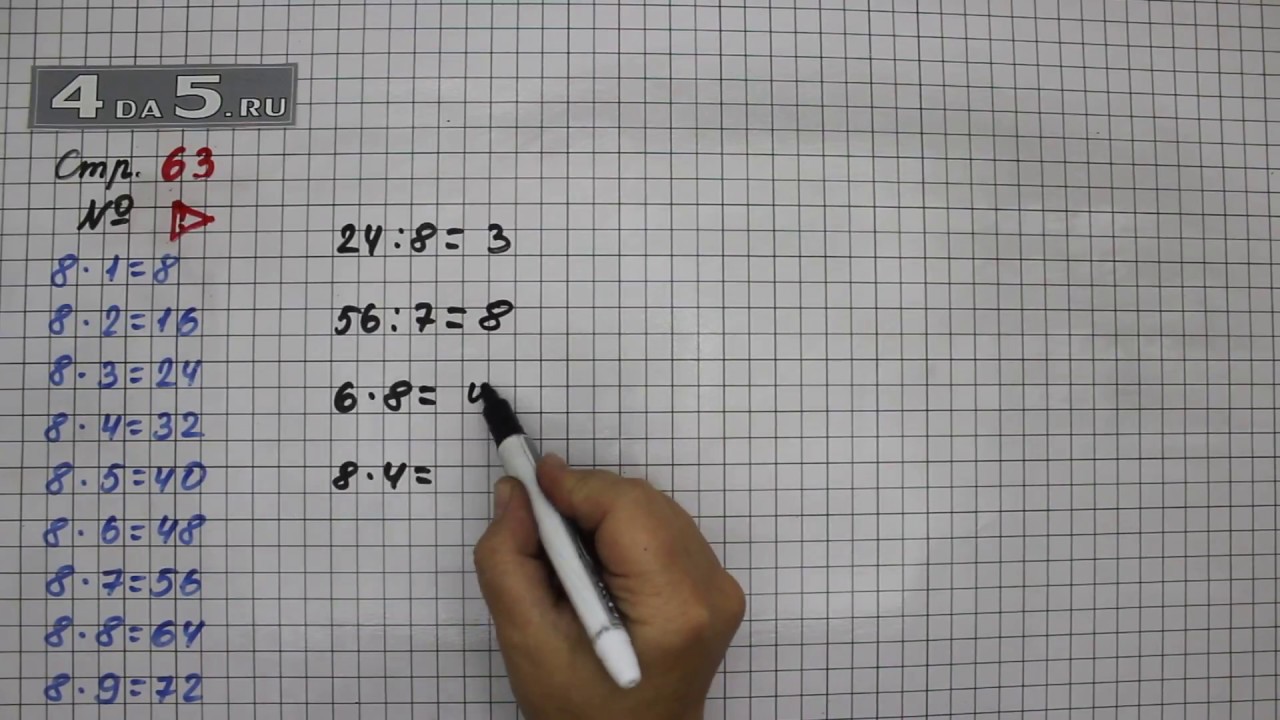 4 DA 5.RU
Стр. 63
№
8·1=8
8·2=16
8·3=24
8·4=32
8·5=40
8·6=48
8·7=56
8·8=64
8·9=72
24:8=3
56:7=8
6·8=4
8·4=